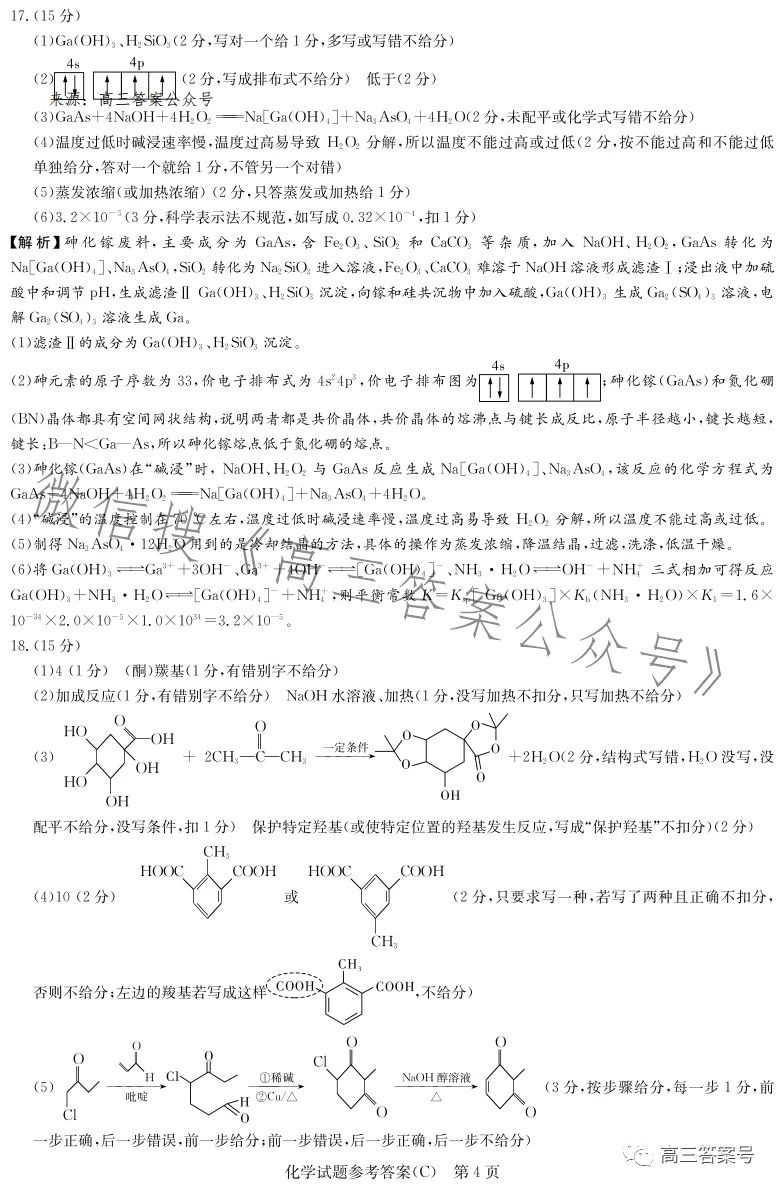 17.(15分)
(1)Ga(OH)₃、H₂SiO₃(2分,写对一个给1分,多写或写错不给分)
4s 4p
(2) ↑↓ ↑ ↑ ↑ (2分,写成排布式不给分) 低于(2分)
来源:高三答案公众号
(3)GaAs+4NaOH+4H₂O₂══Na[Ga(OH)₄]+Na₃AsO₄+4H₂O(2分,未配平或化学式写错不给分)
(4)温度过低时碱浸速率慢,温度过高易导致 H₂O₂ 分解,所以温度不能过高或过低(2分,按不能过高和不能过低
单独给分,答对一个就给1分,不管另一个对错)
(5)蒸发浓缩(或加热浓缩)(2分,只答蒸发或加热给1分)
(6)3.2×10⁻⁵(3分,科学表示法不规范,如写成0.32×10⁻⁴,扣1分)
【解析】砷化镓废料,主要成分为 GaAs,含 Fe₂O₃、SiO₂ 和 CaCO₃ 等杂质,加入 NaOH、H₂O₂,GaAs 转化为
Na[Ga(OH)₄]、Na₃AsO₄,SiO₂ 转化为 Na₂SiO₃ 进入溶液,Fe₂O₃、CaCO₃ 难溶于 NaOH 溶液形成滤渣Ⅰ;浸出液中加硫
酸中和调节 pH,生成滤渣Ⅱ Ga(OH)₃、H₂SiO₃ 沉淀,向镓和硅共沉物中加入硫酸,Ga(OH)₃ 生成 Ga₂(SO₄)₃ 溶液,电
解 Ga₂(SO₄)₃ 溶液生成 Ga。
(1)滤渣Ⅱ的成分为 Ga(OH)₃、H₂SiO₃ 沉淀。
4s 4p
(2)砷元素的原子序数为 33,价电子排布式为 4s²4p³,价电子排布图为 ↑↓ ↑ ↑ ↑ ;砷化镓(GaAs)和氮化硼
(BN)晶体都具有空间网状结构,说明两者都是共价晶体,共价晶体的熔沸点与键长成反比,原子半径越小,键长越短,
键长:B—N<Ga—As,所以砷化镓熔点低于氮化硼的熔点。
(3)砷化镓(GaAs)在“碱浸”时,NaOH、H₂O₂ 与 GaAs 反应生成 Na[Ga(OH)₄]、Na₃AsO₄,该反应的化学方程式为
GaAs+4NaOH+4H₂O₂══Na[Ga(OH)₄]+Na₃AsO₄+4H₂O。
(4)“碱浸”的温度控制在70 ℃左右,温度过低时碱浸速率慢,温度过高易导致 H₂O₂ 分解,所以温度不能过高或过低。
(5)制得 Na₃AsO₄·12H₂O用到的是冷却结晶的方法,具体的操作为蒸发浓缩,降温结晶,过滤,洗涤,低温干燥。
(6)将 Ga(OH)₃⇌Ga³⁺+3OH⁻、Ga³⁺+4OH⁻⇌[Ga(OH)₄]⁻、NH₃·H₂O⇌OH⁻+NH₄⁺ 三式相加可得反应
Ga(OH)₃+NH₃·H₂O⇌[Ga(OH)₄]⁻+NH₄⁺,则平衡常数 K=Kₛₚ[Ga(OH)₃]×K_b(NH₃·H₂O)×K₁=1.6×
10⁻³⁴×2.0×10⁻⁵×1.0×10³⁴=3.2×10⁻⁵。
微信搜《高三答案公众号》
18.(15分)
(1)4(1分) (酮)羰基(1分,有错别字不给分)
(2)加成反应(1分,有错别字不给分) NaOH水溶液、加热(1分,没写加热不扣分,只写加热不给分)
(3) HO HO OH O OH OH + 2CH₃—C—CH₃ O 一定条件 O O O O O OH +2H₂O(2分,结构式写错,H₂O没写,没
配平不给分,没写条件,扣1分) 保护特定羟基(或使特定位置的羟基发生反应,写成“保护羟基”不扣分)(2分)
(4)10(2分) HOOC CH₃ COOH 或 HOOC COOH CH₃ (2分,只要求写一种,若写了两种且正确不扣分,
否则不给分;左边的羧基若写成这样 COOH CH₃ COOH,不给分)
(5) O Cl O H 吡啶 Cl O H O ①稀碱 ②Cu/△ Cl O O NaOH醇溶液 △ O O (3分,按步骤给分,每一步1分,前
一步正确,后一步错误,前一步给分;前一步错误,后一步正确,后一步不给分)
高三答案号
化学试题参考答案(C) 第4页